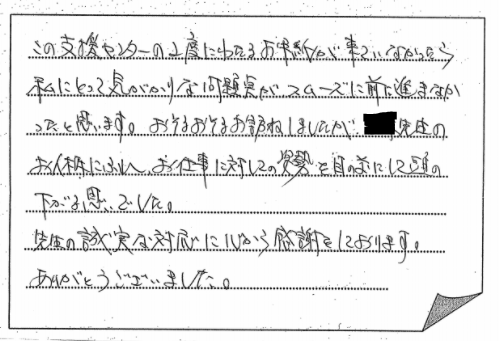 この支援センターの2度にわたるお手紙が来ていなかったら
私にとって気がかりな問題点がスムーズに前に進まなか
ったと思います。おそるおそるお訪ねしましたが 先生の
お人柄にふれ、お仕事に対しての姿勢を目の前にして頭の
下がる思いでした。
先生の誠実な対応に心から感謝をしております。
ありがとうございました。